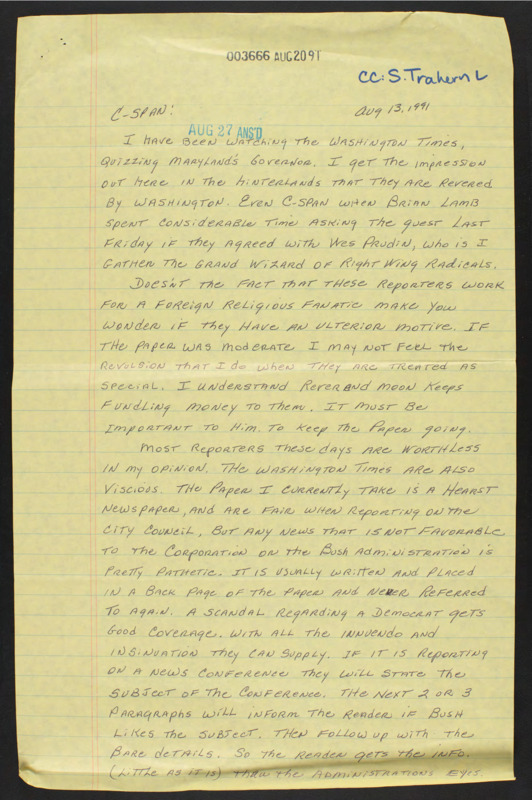 003666 AUG 20 91
CC: S. Trahern L
C-SPAN:
Aug 13, 1991
AUG 27 ANS'D
I HAVE BEEN WATCHING THE WASHINGTON TIMES,
QUIZZING MARYLAND'S GOVERNOR. I GET THE IMPRESSION
OUT HERE IN THE HINTERLANDS THAT THEY ARE REVERED
BY WASHINGTON. EVEN C-SPAN WHEN BRIAN LAMB
SPENT CONSIDERABLE TIME ASKING THE GUEST LAST
FRIDAY IF THEY AGREED WITH WES PRUDIN, WHO IS I
GATHER THE GRAND WIZARD OF RIGHT WING RADICALS.
DOESN'T THE FACT THAT THESE REPORTERS WORK
FOR A FOREIGN RELIGIOUS FANATIC MAKE YOU
WONDER IF THEY HAVE AN ULTERIOR MOTIVE. IF
THE PAPER WAS MODERATE I MAY NOT FEEL THE
REVULSION THAT I DO WHEN THEY ARE TREATED AS
SPECIAL. I UNDERSTAND REVERAND MOON KEEPS
FUNDLING MONEY TO THEM. IT MUST BE
IMPORTANT TO HIM. TO KEEP THE PAPER GOING.
MOST REPORTERS THESE DAYS ARE WORTHLESS
IN MY OPINION. THE WASHINGTON TIMES ARE ALSO
VISCIOUS. THE PAPER I CURRENTLY TAKE IS A HEARST
NEWSPAPER, AND ARE FAIR WHEN REPORTING ON THE
CITY COUNCIL, BUT ANY NEWS THAT IS NOT FAVORABLE
TO THE CORPORATION OR THE BUSH ADMINISTRATION IS
PRETTY PATHETIC. IT IS USUALLY WRITTEN AND PLACED
IN A BACK PAGE OF THE PAPER AND NEVER REFERRED
TO AGAIN. A SCANDAL REGARDING A DEMOCRAT GETS
GOOD COVERAGE. WITH ALL THE INNUENDO AND
INSINUATION THEY CAN SUPPLY. IF IT IS REPORTING
ON A NEWS CONFERENCE THEY WILL STATE THE
SUBJECT OF THE CONFERENCE. THE NEXT 2 OR 3
PARAGRAPHS WILL INFORM THE READER IF BUSH
LIKES THE SUBJECT. THEN FOLLOW UP WITH THE
BARE DETAILS. SO THE READER GETS THE INFO.
(LITTLE AS IT IS) THRU THE ADMINISTRATIONS EYES